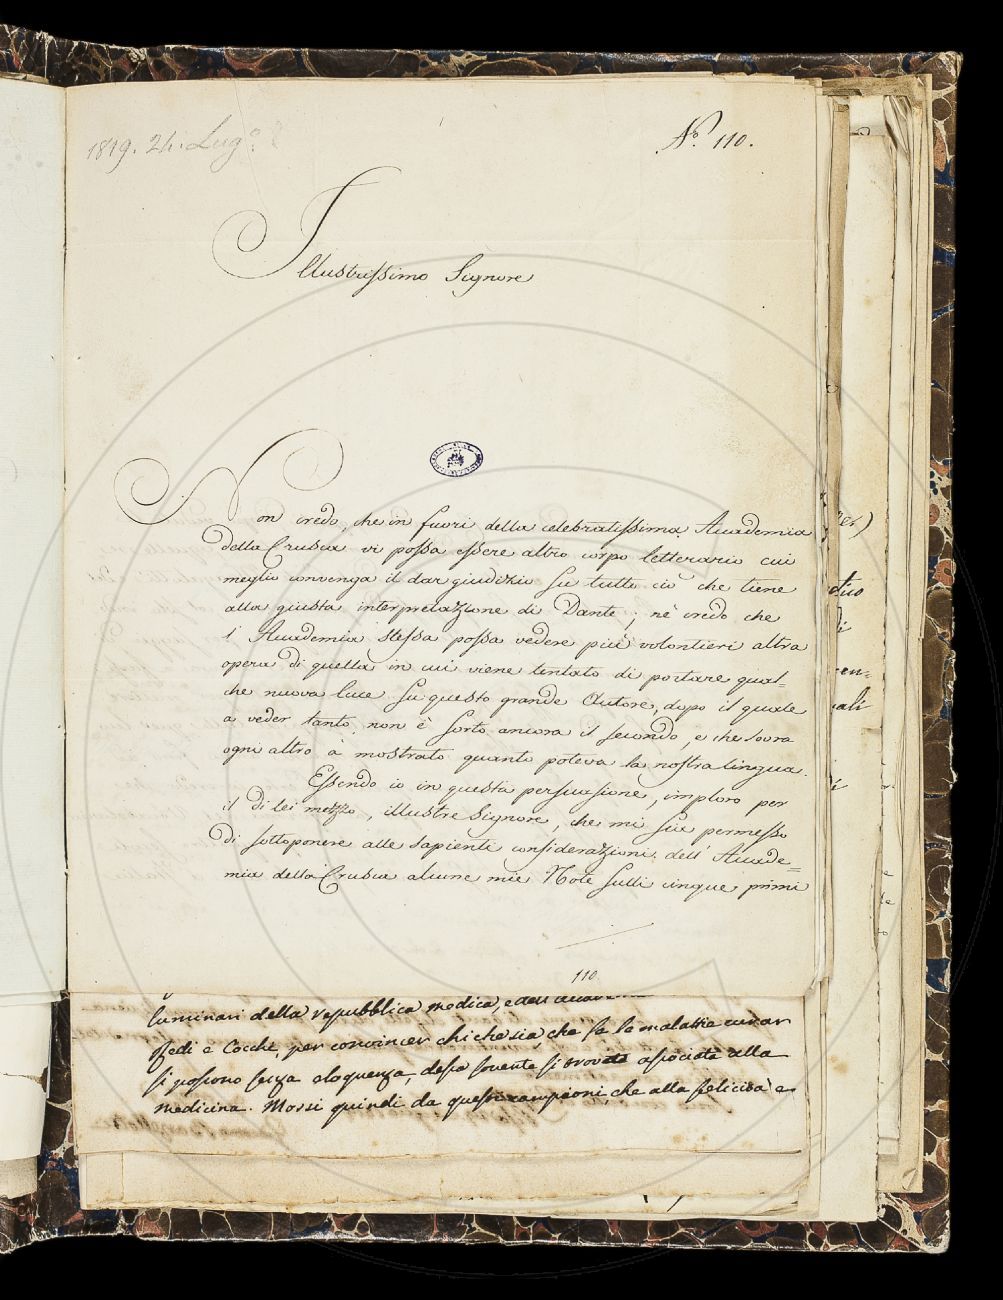 1819. 24. Lug.o
N.o 110.
Illustrissimo Signore
Non credo, che in fuori della celebratissima Accademia
della Crusca vi possa essere altro corpo letterario cui
meglio convenga il dar giudizio su tutto ciò che tiene
alla giusta interpretazione di Dante; nè credo che
l'Accademia stessa possa vedere più volontieri altra
opera di quella in cui viene tentato di portare qual=
che nuova luce su questo grande Autore, dopo il quale
a veder tanto non è sorto ancora il secondo, e che sovra
ogni altro à mostrato quanto poteva la nostra lingua.
Essendo io in questa persuasione, imploro per
il di lei mezzo, illustre Signore, che mi sia permesso
di sottoporre alle sapienti considerazioni dell'Accade=
mia della Crusca alcune mie Note sulli cinque primi
110
luminari della repubblica medica, e dell'
Redi e Cocchi, per convincer chichesia, che se le malattie curar
si possono senza eloquenza, dessa sovente si trovata associata alla
medicina. Mossi quindi da questi campioni, che alla felicità e